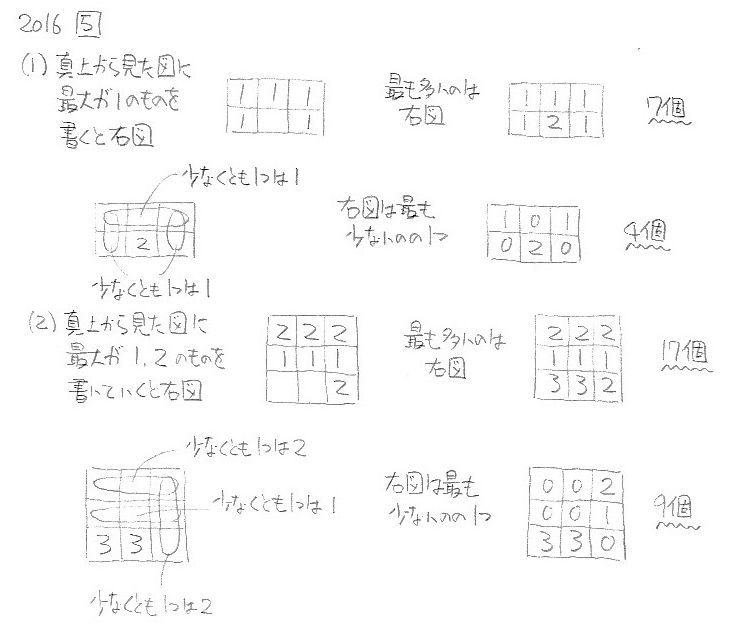 2016 5
(1) 真上から見た図に
最大が1のものを
書くと右図
1 1 1
1 1
最も多いのは
右図
1 1 1
1 2 1
7個
少なくとも1つは1
2
少なくとも1つは1
右図は最も
少ないものの1つ
1 0 1
0 2 0
4個
(2) 真上から見た図に
最大が1,2のものを
書いていくと右図
2 2 2
1 1 1
2
最も多いのは
右図
2 2 2
1 1 1
3 3 2
17個
少なくとも1つは2
少なくとも1つは1
3 3
少なくとも1つは2
右図は最も
少ないものの1つ
0 0 2
0 0 1
3 3 0
9個